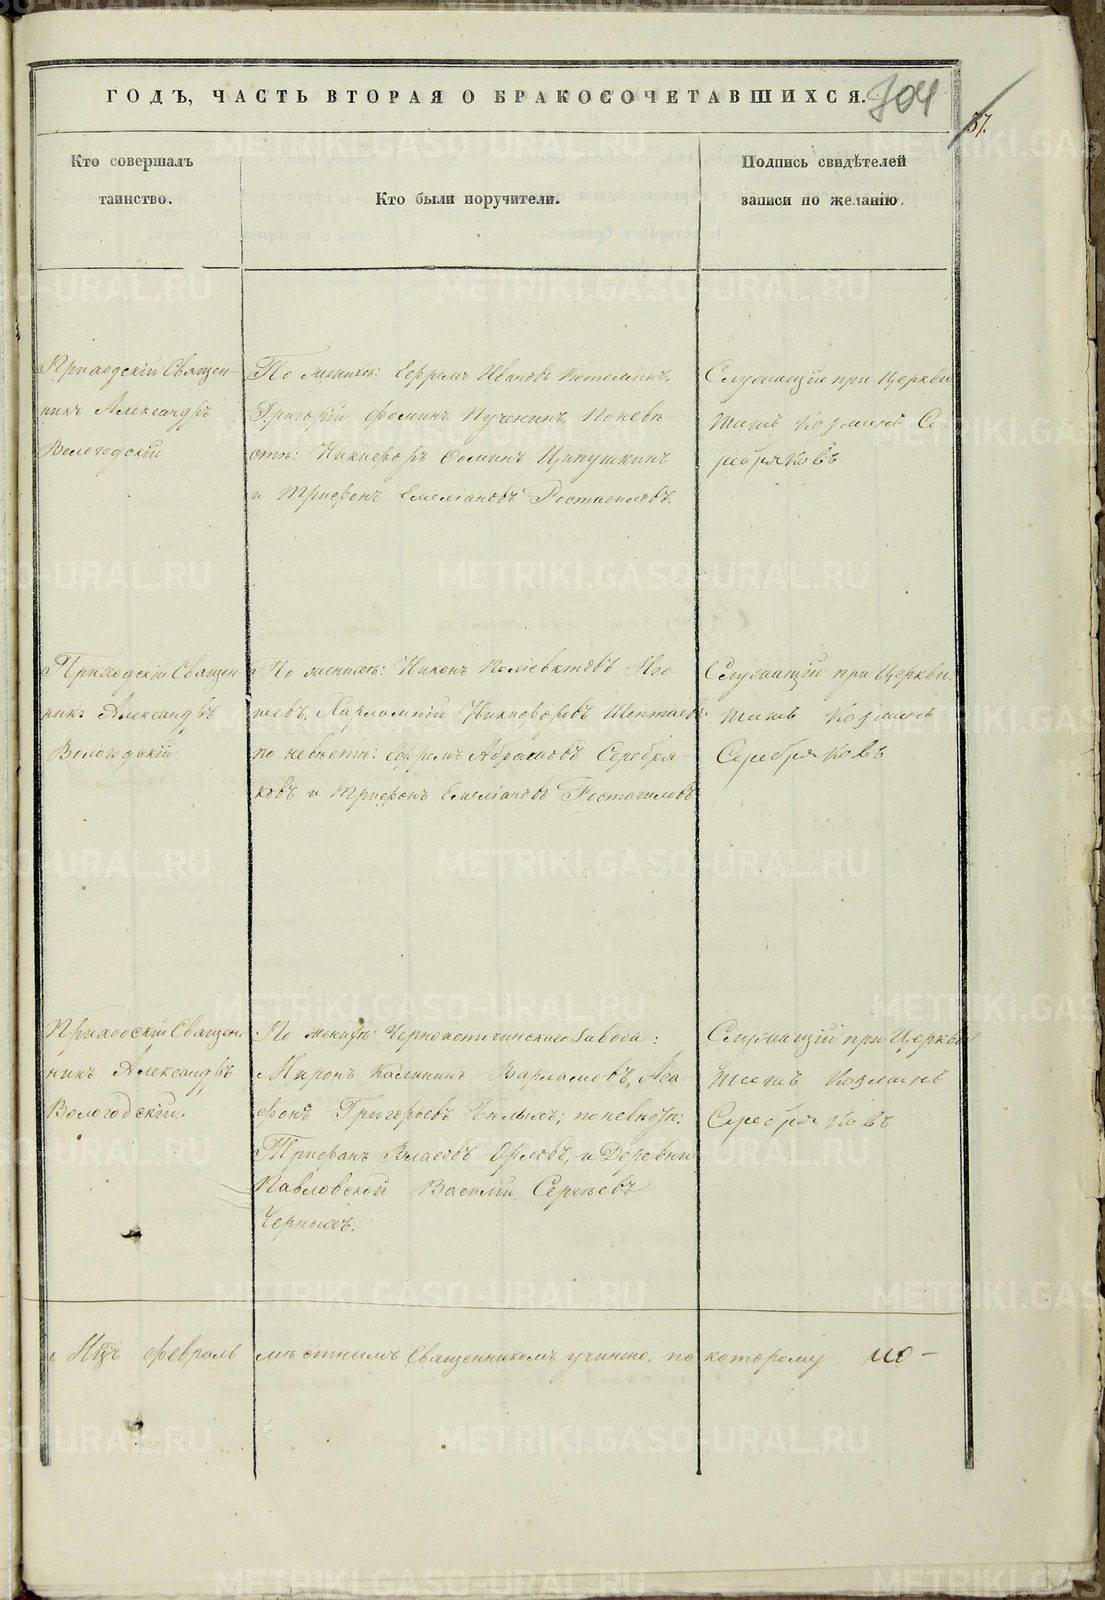 ГОДЪ, ЧАСТЬ ВТОРАЯ О БРАКОСОЧЕТАВШИХСЯ.
704
37.
Кто совершалъ
таинство.
Кто были поручители.
Подпись свидѣтелей
записи по желанію.
Приходскій Священ-
никъ Александръ
Вологодскій
По женихѣ: Ефремъ Ивановъ
Григорій Фоминъ Пученкинъ, По невѣ-
стѣ: Никифоръ Фоминъ Ципушкинъ
и Трифонъ Емеліановъ
Служащій при Церкви
Титъ Козминъ Се
ребряковъ
Приходскій Священ
никъ Александръ
Вологодскій
По женихѣ: Никонъ
Харлампій Никифоровъ
по невѣстѣ: Ефремъ Абрамовъ Серебря-
ковъ и Трифонъ Емеліановъ
Служащій при Церкви
Титъ Козминъ
Серебряковъ
Приходскій Священ
никъ Александръ
Вологодскій.
По женихѣ: Черноисточинскаго Завода:
Миронъ Калининъ Варламовъ, Ага
фонъ Григорьевъ по невѣстѣ:
Трифонъ Власовъ Орловъ, и Деревни
Павловской Василій Сергѣевъ
Черныхъ.
Служащій при Церкви
Титъ Козминъ
Серебряковъ
февраль мѣстнымъ Священникомъ учинено, по которому
METRIKI.GASO-URAL.RU